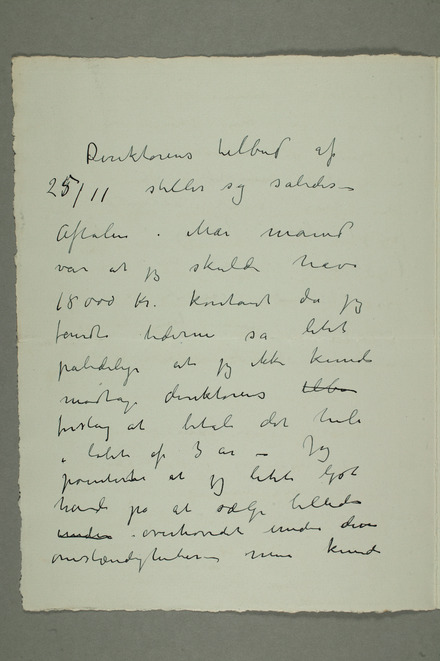 Direktorens tilbud af
25/11 stiller sig saledes –
Aftalen i Mai maned
var at jeg skulde have
18000 Kr. kontant da jeg
fandt tiderne sa lidet
palidelige at jeg ikke kunde
modtage direktorens
forslag at betale det hele
i løbet af 3 ar – Jeg
pointerte at jeg lidet godt
havde på at sælge billede
overhovedet under disse
omstændigheder men kunde